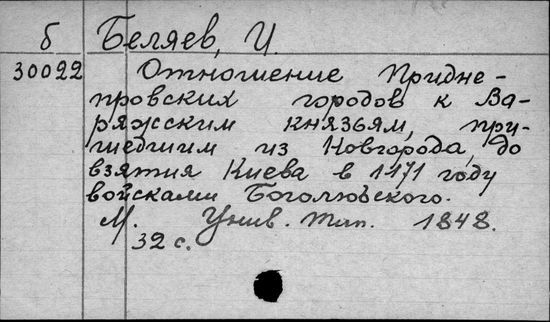 б Беляев, И.
30022 Отношение Придне-
провских городов к Ва-
ряжским князьям, при-
шедшим из Новгорода, до
взятия Киева в 1171 году
войсками Боголюбского.
М. Унив. тип. 1848.
32 с.